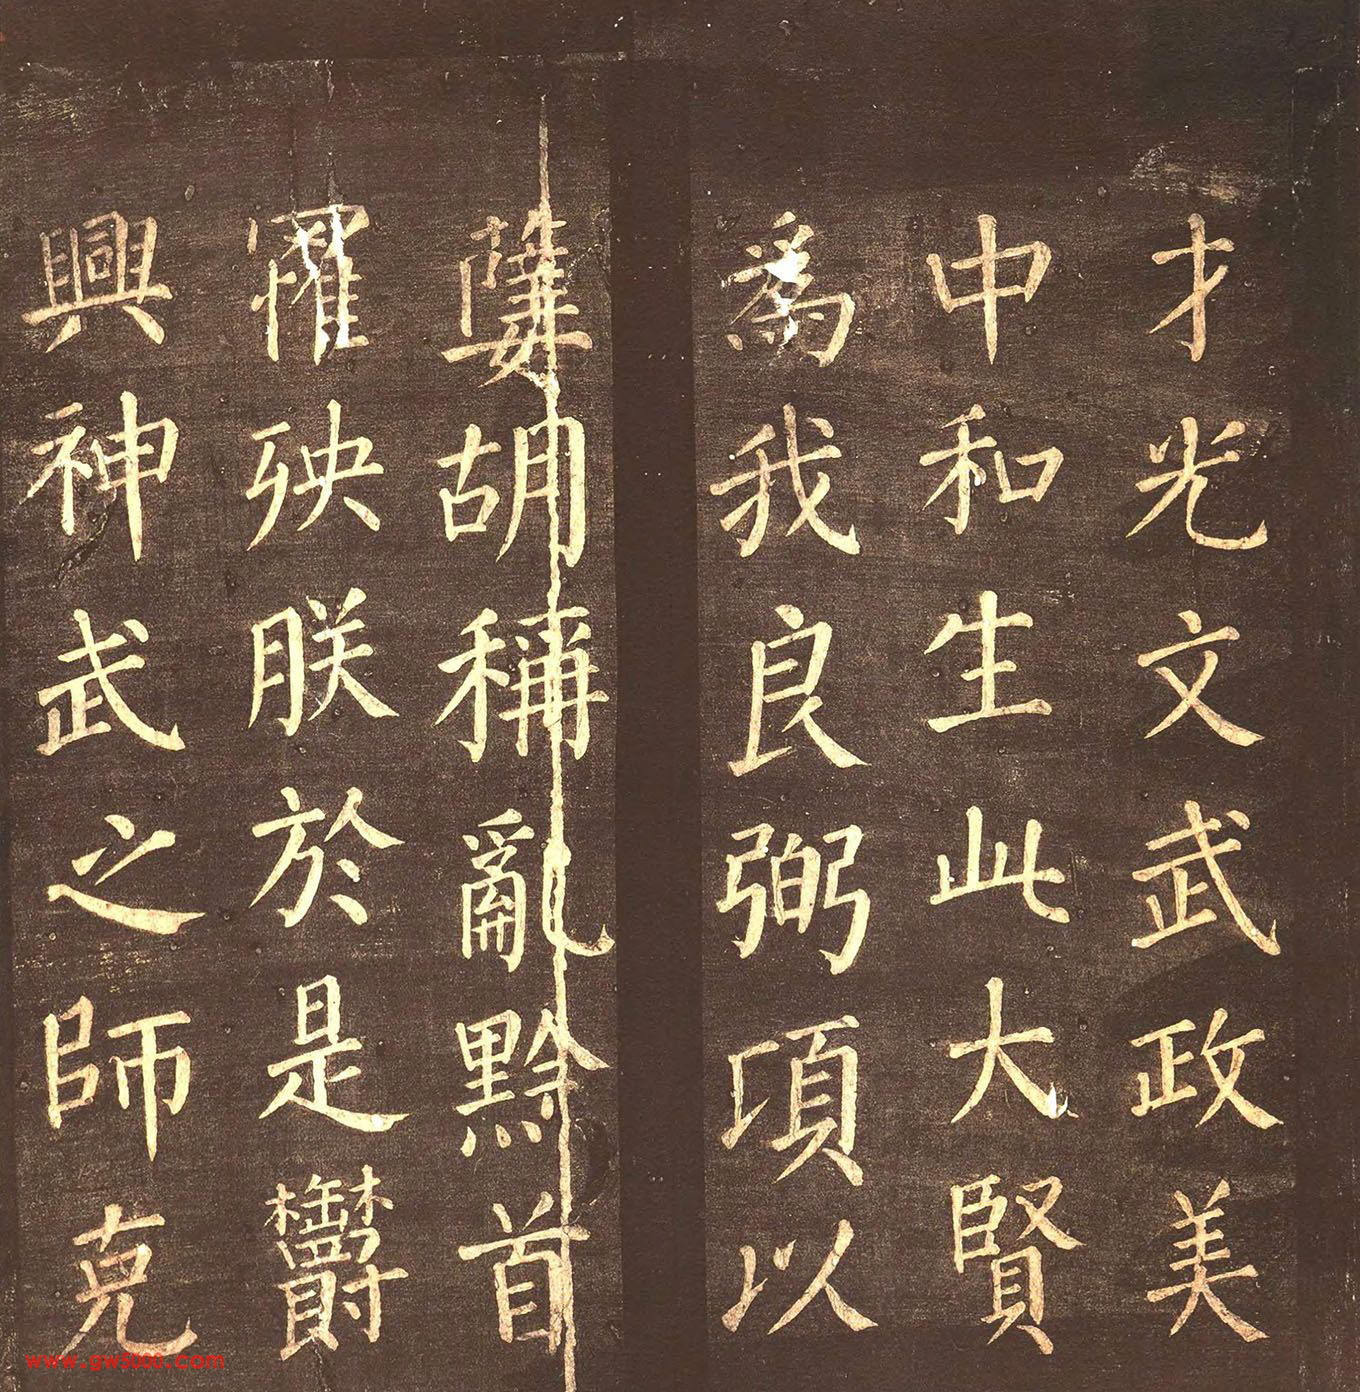 才光文武政美
中和生此大賢
為我良弼項以
孽胡稱亂黔首
罹殃朕於是欝
興神武之師克
www.gw5000.com